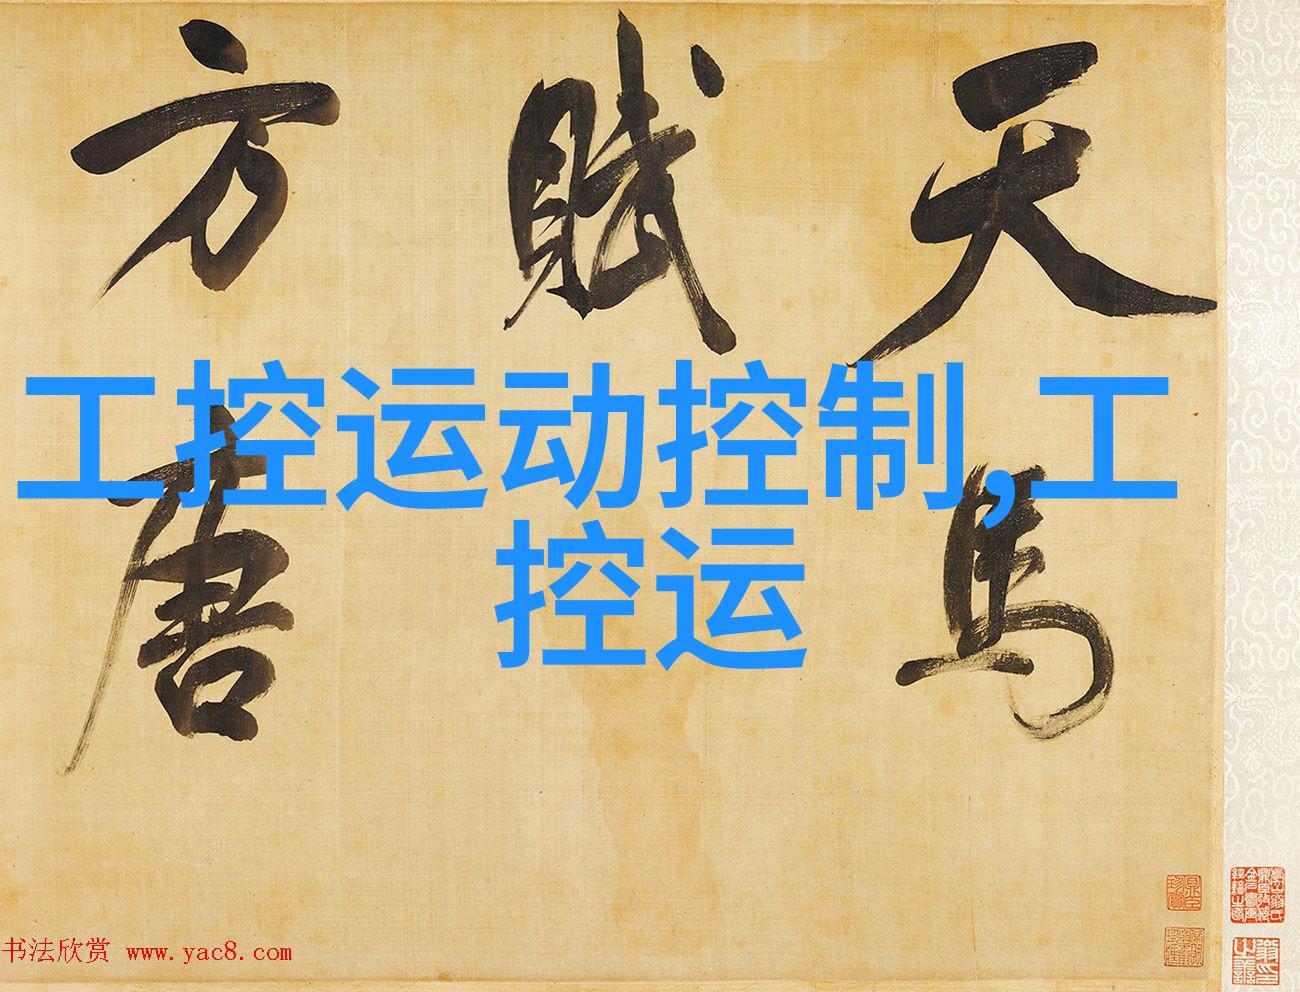 天馬
賦
方唐
工控运动控制,工
控运
书法欣赏 www.yac8.com